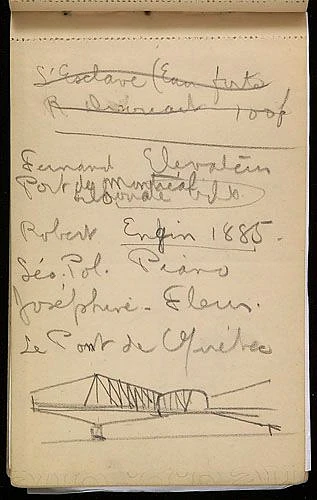 L'Esclave (Eau forte
R 100f
Fernand Elevateur
Port du Montréal
Robert Engin 1885.
Léo. Pol. Piano
Joséphine - Fleur.
Le Pont de Québec